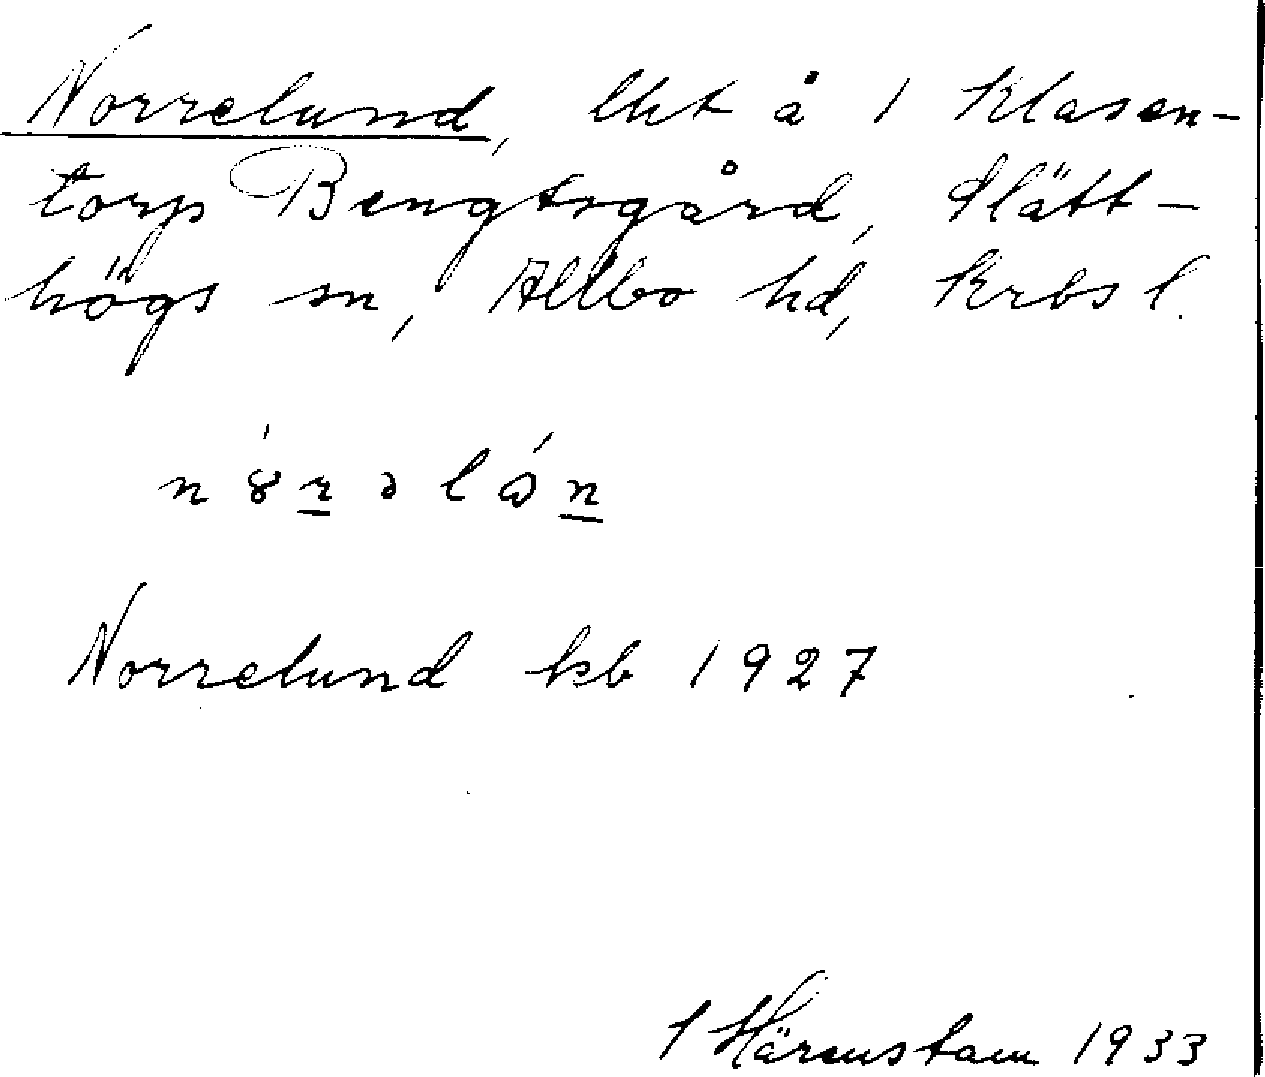 Norrelund, lht å 1 Klasen-
torp Bengtsgård, Slätt-
högs sn, Allbo hd, Krbs l.
n ȣ́ r ə l ó n
Norrelund kb 1927
Härenstam 1933